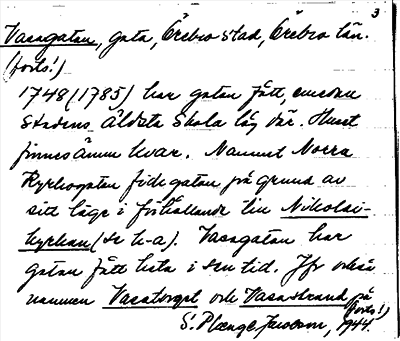 3
Vasagatan, gata, Örebro stad, Örebro län.
(forts!)
1748 (1785) har gatan fått, emedan
stadens äldsta skola låg där. Huset
finnes ännu kvar. Namnet Norra
Kyrkogatan fick gatan på grund av
sitt läge i förhållande till Nikolai-
kyrkan (se k-a). Vasagatan har
gatan fått heta i sen tid. Jfr också
namnen Vasatorget och Vasastrand på
(forts!)
S. Plænge Jacobson, 1944.